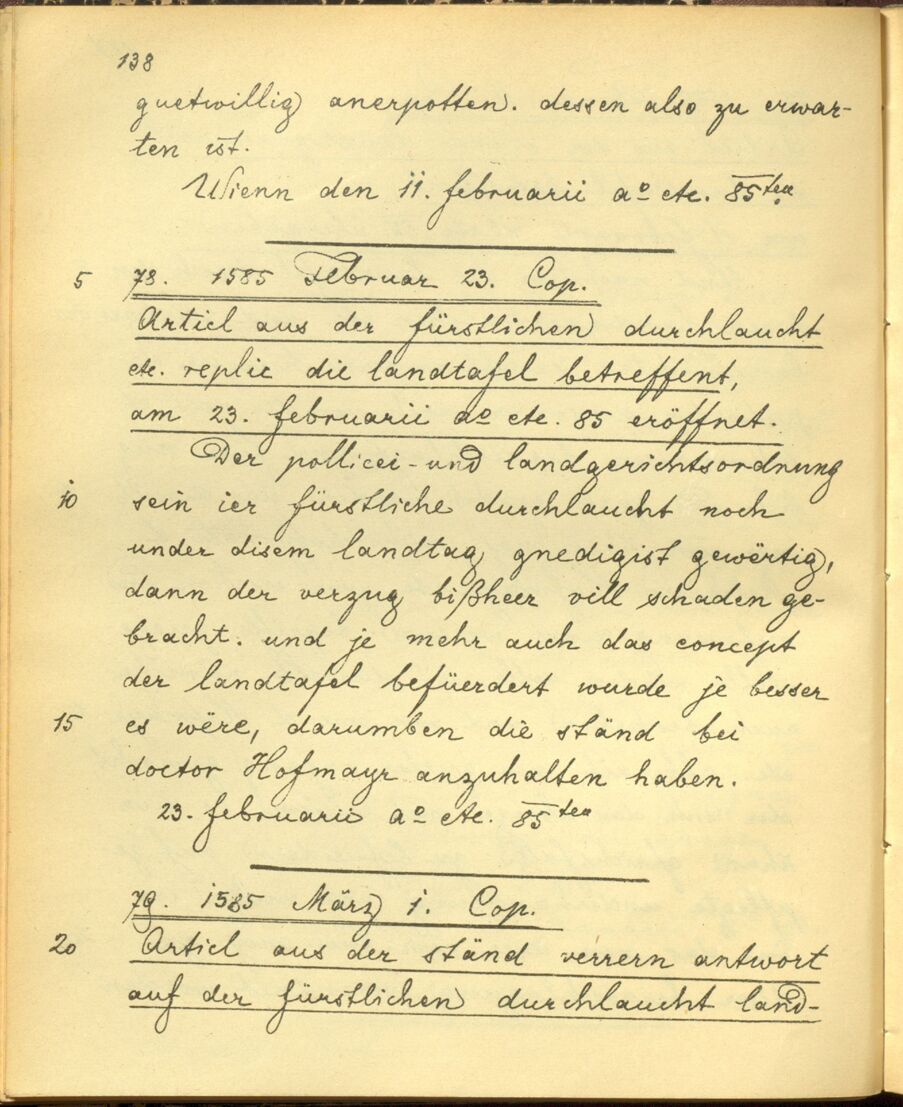 138
guetwillig anerpotten. dessen also zu erwar-
ten ist.
Wienn den 11. februarii aº etc. 85ten
5 78. 1585 Februar 23. Cop.
Articl aus der fürstlichen durchlaucht
etc. replic die landtafel betreffent,
am 23. februarii aº etc. 85 eröffnet.
Der pollicei- und landgerichtsordnung
10 sein ier fürstliche durchlaucht noch
under disem landtag gnedigist gewërtig,
dann der verzug bißheer vill schaden ge-
bracht. und je mehr auch das concept
der landtafel befüerdert wurde je besser
15 es wëre, darumben die ständ bei
doctor Hofmayr anzuhalten haben.
23. februarii aº etc. 85ten
79. 1585 März 1. Cop.
20 Articl aus der ständ verrern antwort
auf der fürstlichen durchlaucht land-